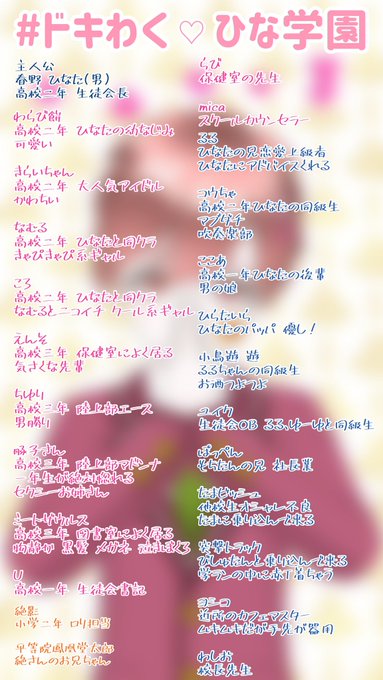 #ドキわく♡ひな学園
主人公
春野 ひなた(男)
高校二年 生徒会長
わらび餅
高校二年 ひなたの幼なじみ
可愛い
きらいちゃん
高校二年 大人気アイドル
かわちい
なむる
高校二年 ひなたと同クラ
きゃぴきゃぴ系ギャル
ころ
高校二年 ひなたと同クラ
なむるとニコイチ クール系ギャル
えんそ
高校三年 保健室によく居る
気さくな先輩
ちゆり
高校三年 陸上部エース
男勝り
豚子さん
高校三年 陸上部マドンナ
一年生が絶対惚れる
セクシーお姉さん
ミートザウルス
高校三年 図書室によく居る
黒髪 メガネ
U
高校一年 生徒会書記
絶影
小学二年 ロリ担当
早等院鳳凰堂太郎
絶さんのお兄ちゃん
らび
保健室の先生
mica
スクールカウンセラー
るる
ひなたの兄恋愛上級者
ひなたにアドバイスくれる
コウちゃ
高校二年ひなたの同級生
マブダチ
吹奏楽部
ここあ
高校一年ひなたの後輩
男の娘
ひらたいら
ひなたのパッパ 優し!
小鳥遊 遊
るるちゃんの同級生
お酒つよつよ
ユイク
生徒会OB るる、ゆーゆと同級生
ぽっぺん
そちたんの兄 社長業
たまピッシュ
他校生オシャレ不良
たまに乗り込んで来る
突撃トラック
ぴしゅたんと乗り込んで来る
学ランの中に赤T着ちゃう
ヨシコ
近所のカフェマスター
ムキムキだが手先が器用
わしお
校長先生